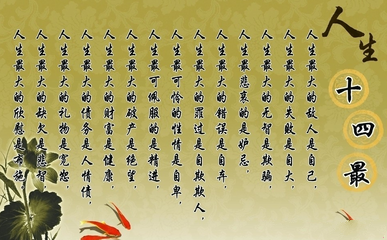 人生
十四最
人生最大的敌人是自己，
人生最大的失败是自大，
人生最大的无智是欺骗，
人生最悲哀的是妒忌，
人生最大的错误是自弃，
人生最大的罪过是自欺欺人，
人生最可怜的性情是自卑，
人生最可佩服的是精进，
人生最大的破产是绝望，
人生最大的财富是健康，
人生最大的债务是人情债，
人生最大的礼物是宽恕，
人生最大的缺欠是悲智，
人生最大的欣慰是布施